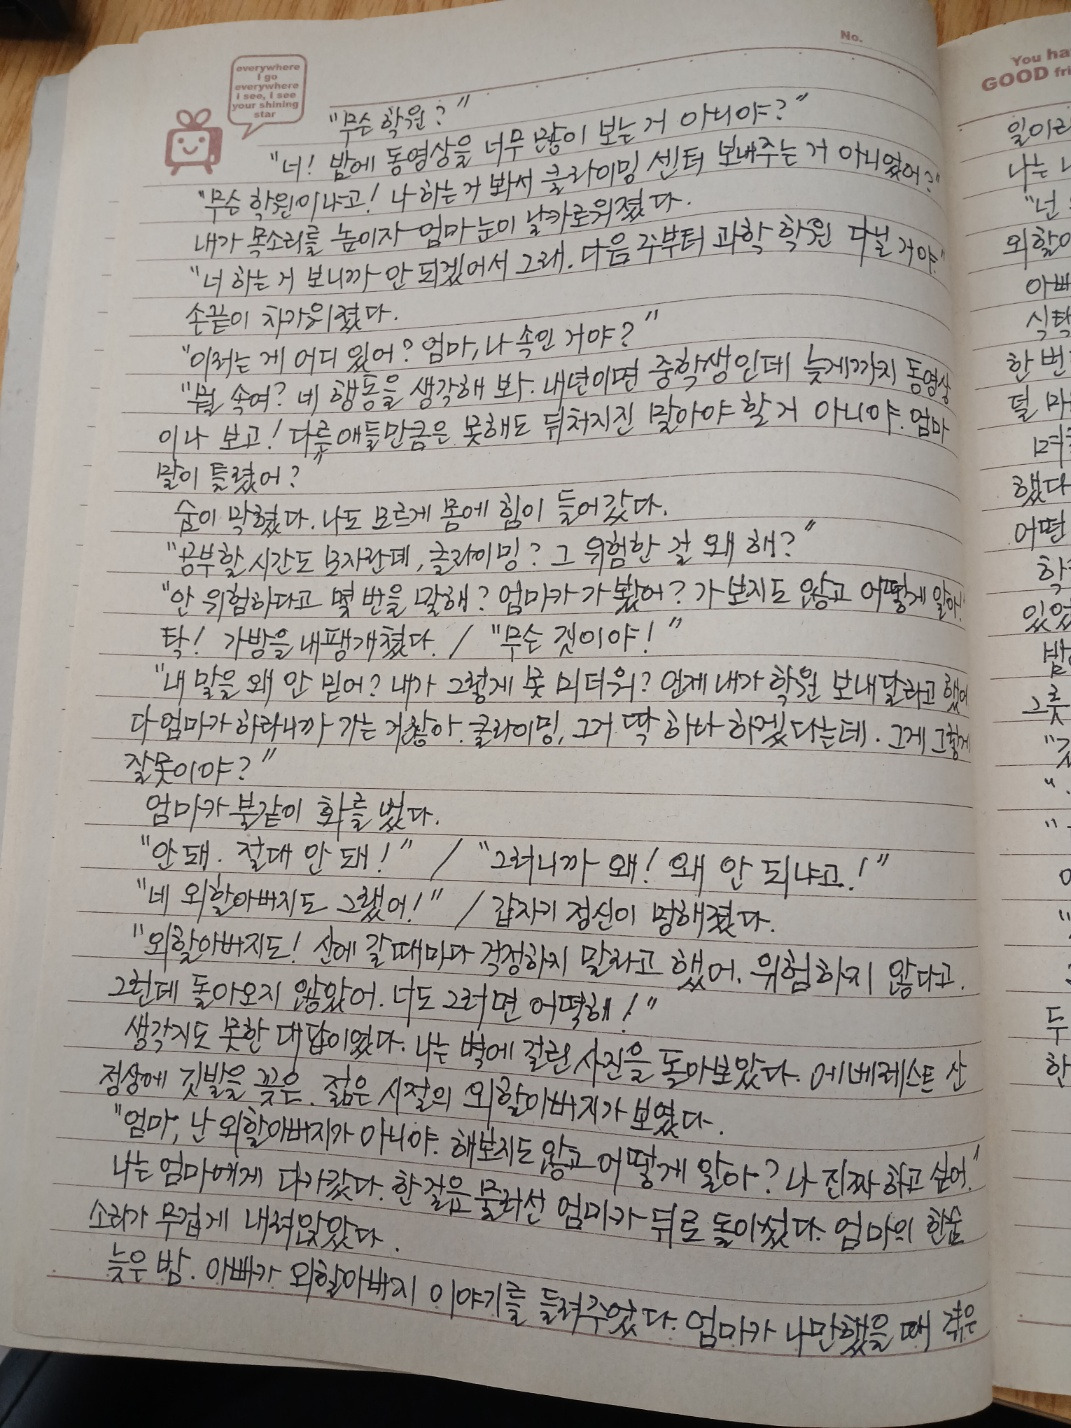 No.
everywhere
I go
everywhere
i see, I see
your shining
star
"무슨 학원?"
"너! 밤에 동영상을 너무 많이 보는 거 아니야?"
"무슨 학원이냐고! 나 하는 거 봐서 클라이밍 센터 보내주는 거 아니었어?"
내가 목소리를 높이자 엄마 눈이 날카로워졌다.
"너 하는 거 보니까 안 되겠어서 그래. 다음 주부터 과학 학원 다닐 거야."
손끝이 차가워졌다.
"이러는 게 어디 있어? 엄마, 나 속인 거야?"
"뭘 속여? 네 행동을 생각해 봐. 내년이면 중학생인데 늦게까지 동영상
이나 보고! 다른 애들만큼은 못해도 뒤처지진 말아야 할 거 아니야. 엄마
말이 틀렸어?
숨이 막혔다. 나도 모르게 몸에 힘이 들어갔다.
"공부할 시간도 모자란데, 클라이밍? 그 위험한 걸 왜 해?"
"안 위험하다고 몇 번을 말해? 엄마가 가 봤어? 가 보지도 않고 어떻게 알아!"
탁! 가방을 내팽개쳤다. / "무슨 짓이야!"
"내 말을 왜 안 믿어? 내가 그렇게 못 미더워? 언제 내가 학원 보내달라고 했어
다 엄마가 하라니까 가는 거잖아. 클라이밍, 그거 딱 하나 하겠다는데. 그게 그렇게
잘못이야?"
엄마가 불같이 화를 냈다.
"안 돼. 절대 안 돼!" / "그러니까 왜! 왜 안 되냐고!"
"네 외할아버지도 그랬어!" / 갑자기 정신이 멍해졌다.
"외할아버지도! 산에 갈 때마다 걱정하지 말라고 했어. 위험하지 않다고.
그런데 돌아오지 않았어. 너도 그러면 어떡해!"
생각지도 못한 대답이었다. 나는 벽에 걸린 사진을 돌아보았다. 에베레스트 산
정상에 깃발을 꽂은. 젊은 시절의 외할아버지가 보였다.
"엄마, 난 외할아버지가 아니야. 해보지도 않고 어떻게 알아? 나 진짜 하고 싶어."
나는 엄마에게 다가갔다. 한 걸음 물러선 엄마가 뒤로 돌아섰다. 엄마의 한숨
소리가 무겁게 내려앉았다.
늦은 밤. 아빠가 외할아버지 이야기를 들려주었다. 엄마가 나만했을 때 겪은
You ha
GOOD fri
일이라
나는
"넌
외할아
아빠
식탁
한 번
덜
했다
어떤
있었
그릇
두
한